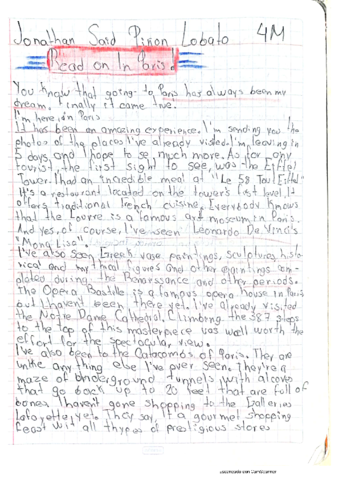 Jonathan Said Piñon Lobato 4M
Read on In Paris!
You know that going to Paris has always been my
dream. Finally it came true.
I'm here, in Paris
It has been an amazing experience. I'm sending you the
photos of the places I've already visited. I'm leaving in
5 days, and I hope to see much more. As for any
tourist, the first sight to see, was the Eiffel
Tower. I had an incredible meal at "Le 58 Tour Eiffel"
It's a restaurant located on the tower's first level. It
offers traditional french cuisine. Everybody knows
that the Louvre is a famous art museum in Paris.
And yes, of course, I've seen Leonardo Da Vinci's
"Mona Lisa".
I've also seen Greek vase paintings, sculptures, histo
rical and figures and other paintings
during the Renaissance and other periods.
The Opera Bastille is a famous opera house in Paris
but I haven't been there yet. I've already visited
the Notre Dame Cathedral. Climbing the 387 steps
to the top of this masterpiece was well worth the
effort for the spectacular view.
I've also been to the Catacombs of Paris. They are
unlike any thing else I've ever seen. They're a
maze of underground tunnels with alcoves
that go back up to 20 feet that are full of
bones. I haven't gone shopping to the Galleries
Lafayette, yet. They say it a gourmet shopping
feast wit all thypes of prestigious stores